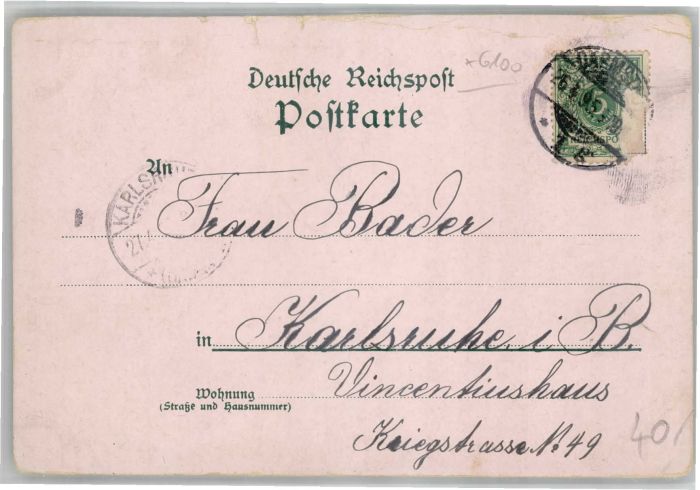 Deutsche Reichspost
Postkarte
*6100
An
Frau Bader
in Karlsruhe i B.
Wohnung
(Straße und Hausnummer)
Vincentiushaus
Kriegstrasse N. 49
40